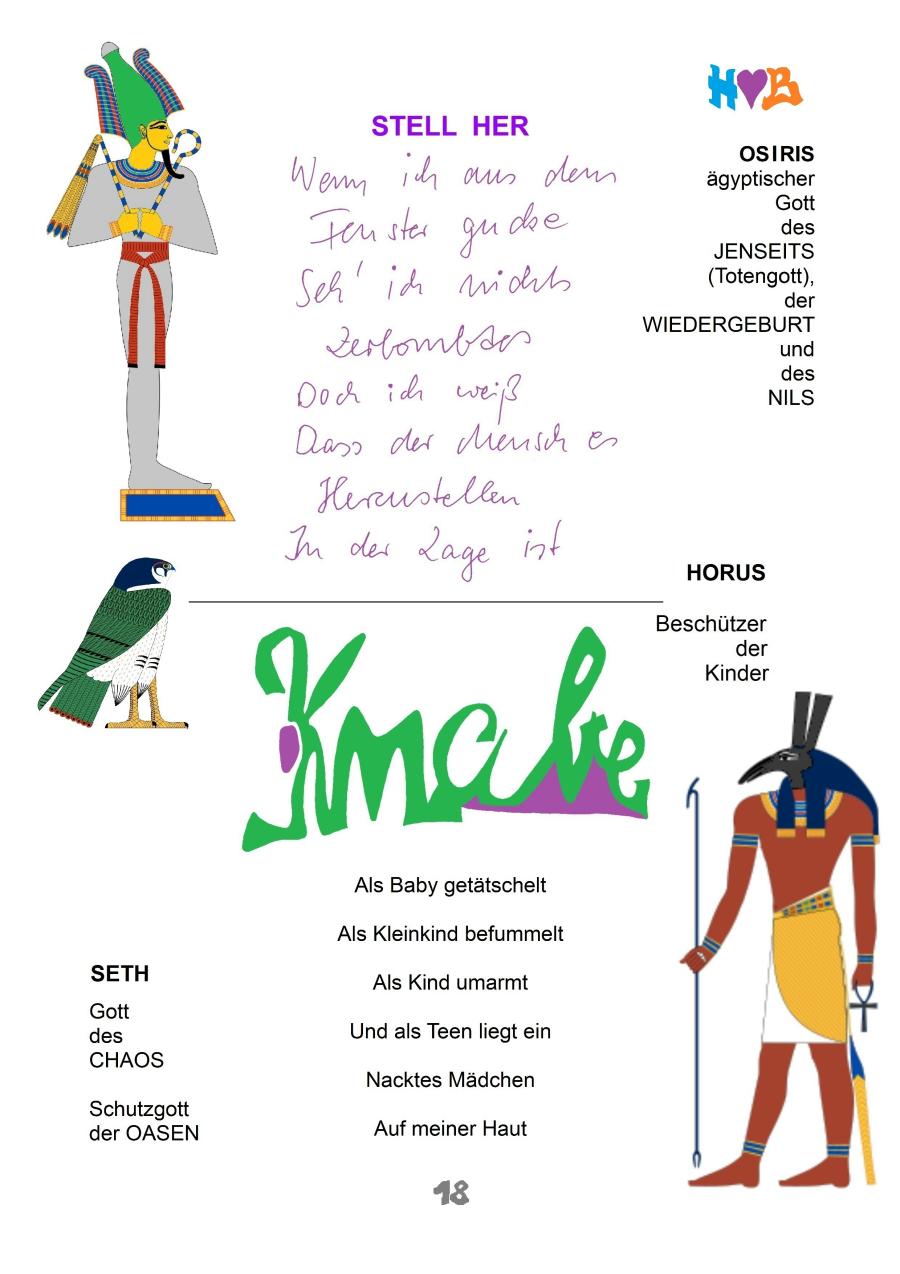 H♥B
STELL HER
Wenn ich aus dem
Fenster gucke
Seh' ich nichts
Zerbombtes
Doch ich weiß
Dass der Mensch es
Herzustellen
In der Lage ist
OSIRIS
ägyptischer
Gott
des
JENSEITS
(Totengott),
der
WIEDERGEBURT
und
des
NILS
HORUS
Beschützer
der
Kinder
Knabe
Als Baby getätschelt
Als Kleinkind befummelt
Als Kind umarmt
Und als Teen liegt ein
Nacktes Mädchen
Auf meiner Haut
SETH
Gott
des
CHAOS
Schutzgott
der OASEN
18